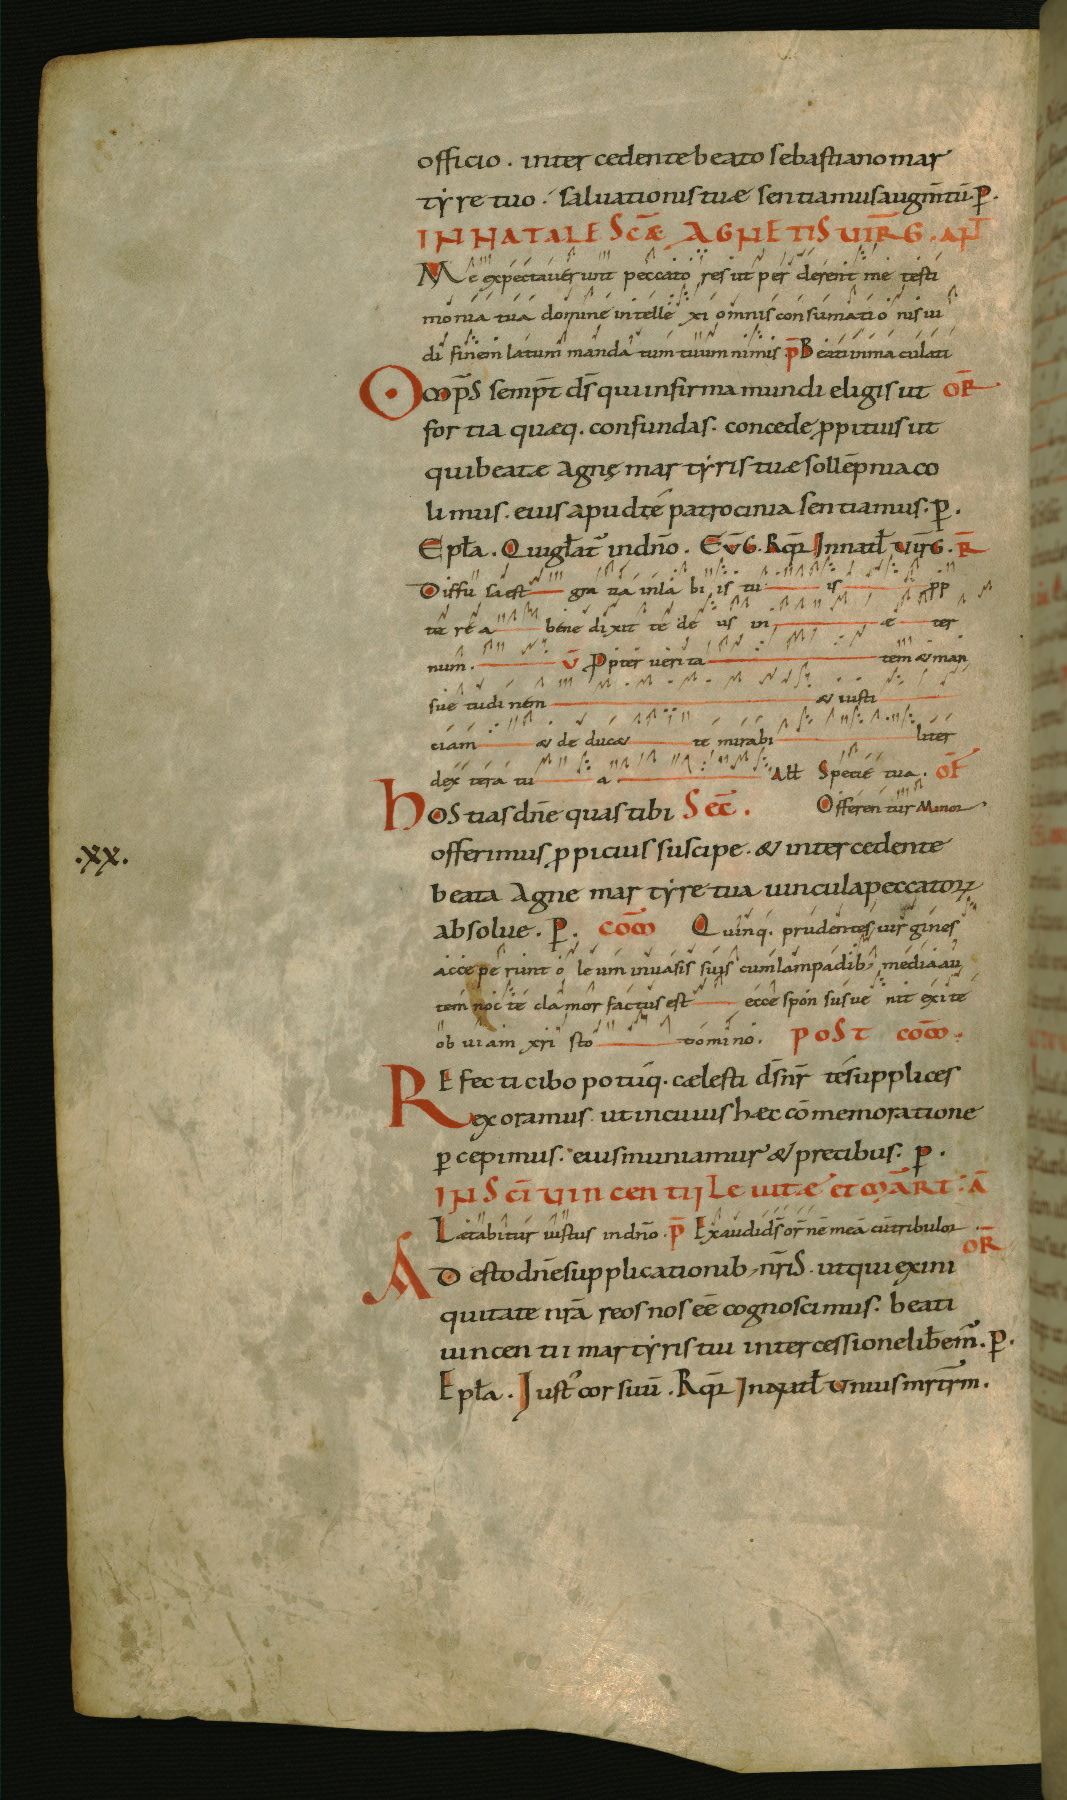 officio . inter cedente beato sebastiano mar
tyre tuo . saluationis tuæ sentiamus augm̄tū . P̄ .
IN NATALE SC̄Æ AGNETIS VIRḠ . AN̄T
Me expectauerunt peccatores ut perderent me testi
monia tua domine intellexi omnis consumationis ui
di finem latum mandatum tuum nimis . p̄ Beati inmaculati
Omp̄s semp̄t ds̄ qui infirma mundi eligis ut OR̄
fortia quæq . confundas . concede ppitius ut
qui beatæ Agnę martyris tuæ sollēpnia co
limus . eius apud tē patrocinia sentiamus . P̄ .
Epła . Qui głat̄ in dn̄o . EVḠ . Rqr̄ In natł VirḠ . R̄
Diffusa est gratia in labiis tuis pp
terea benedixit te deus in æter
num . V̄ Ppter ueritatem & man
suetudinem & iusti
ciam & deducæ te mirabiliter
dextera tuaAłł Specie tua . OF̄
Hostias dn̄e quas tibi Sec̄ . Offerentur Minor
.XX.
offerimus ppicius suscipe . & intercedente
beata Agne martyre tua uincula peccatorꝝ
absolue . P̄ . COM̄ Quinq . prudentes uirgines
acceperunt oleum in uasis suis cum lampadib; media au
tem nocte clamor factus est ecce sponsus uenit exite
obuiam xpi sto domino . POST COM̄ .
Refecti cibo potuq . cælesti ds̄ nr̄ te supplices
exoramus . ut in cuius hæc cōmemoratione
pcepimus . eius muniamur & precibus . P̄ .
IN SC̄I VINCENTII LEUITÆ ET MAR̄T . Ā
Lætabitur iustus in dn̄o . p̄ Exaudi ds̄ or̄nē meā cū tribulor .
OR̄
Adesto dn̄e supplicationib; nr̄is . ut qui ex ini
quitate nr̄a reos nos eē cognoscimus . beati
uincentii martyris tui intercessione liƀem̄ . P̄ .
Epła . Iust' cor suū . Rqr̄ In natł Vnius mrt̄rm .